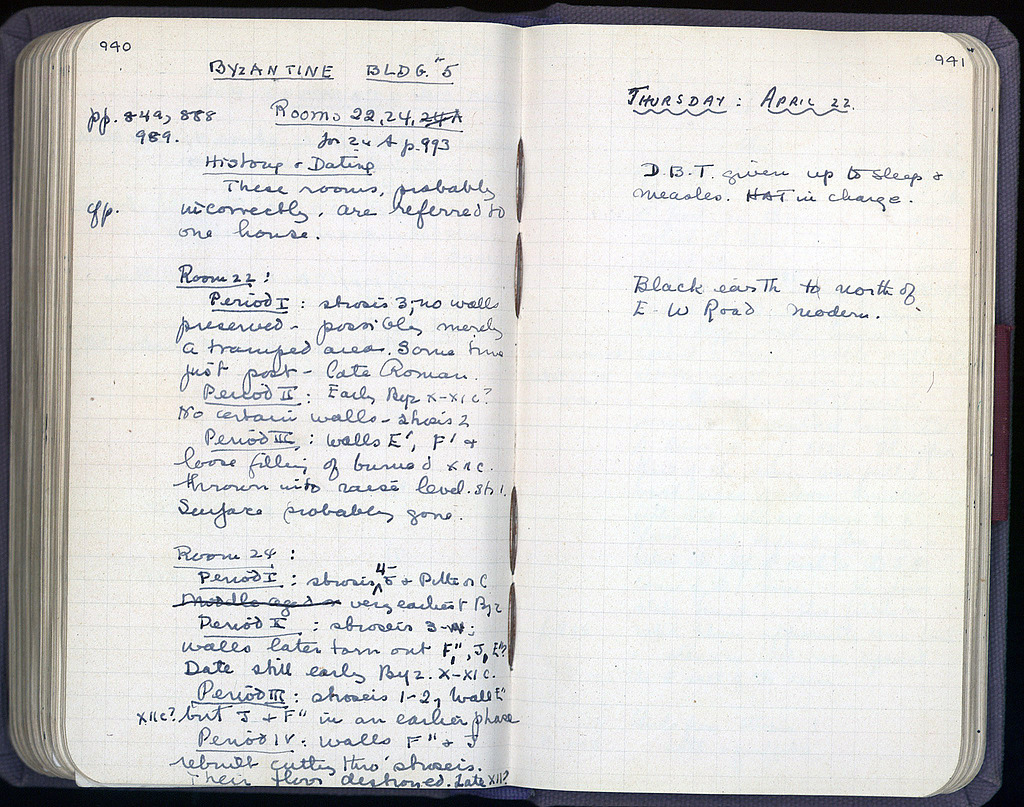 940
BYZANTINE BLDG. 5
pp. 849, 888
989.
Rooms 22, 24, 24A
for 24 A p. 993
History & Dating
These rooms, probably
incorrectly, are referred to
one house.
Room 22:
Period I: strosis 3, no walls
preserved - possibly merely
a tramped area. Some time
just post - Late Roman.
Period II: Early Byz X-XI c?
No certain walls - strosis 2
Period III: walls E', F' +
loose filling of burned XII c.
thrown into raise level. str 1.
Surface probably gone.
Room 24:
Period I: strosis 4-5 +
very earliest Byz
Period II: stroseis 3-
walls later torn out F", J, E"?
Date still early Byz. X-XI c.
Period III: stroseis 1-2, Wall E"
XII c? but J + F" in an earlier phase
Period IV: walls F" + J
rebuilt cutting thro' stroseis.
Their floor destroyed. Late XII?
941
THURSDAY: APRIL 22.
D.B.T. given up to sleep &
measles. HAT in charge.
Black earth to north of
E-W Road modern.